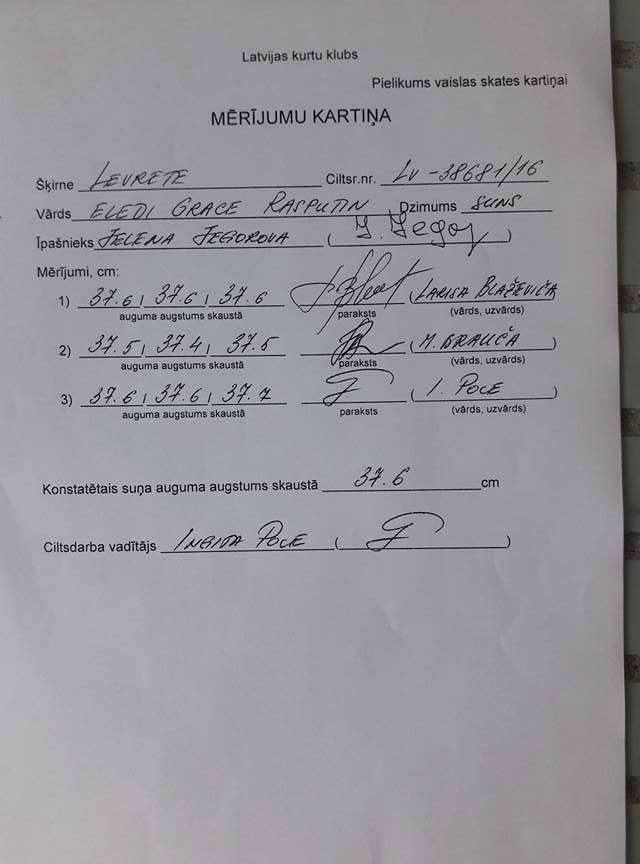 Latvijas kurtu klubs
Pielikums vaislas skates kartiņai
MĒRĪJUMU KARTIŅA
Šķirne LEVRETE Ciltsr.nr. LV-38681/16
Vārds ELEDI GRACE RASPUTIN Dzimums SUNS
Īpašnieks JELENA JEGOROVA ( J. Jegor )
Mērījumi, cm:
1) 37.6, 37.6, 37.6 (LARISA BLAŽEVIČA
auguma augstums skaustā paraksts (vārds, uzvārds)
2) 37.5, 37.4, 37.5 ( M. GRAUČA )
auguma augstums skaustā paraksts (vārds, uzvārds)
3) 37.6, 37.6, 37.7 ( I. POCE )
auguma augstums skaustā paraksts (vārds, uzvārds)
Konstatētais suņa auguma augstums skaustā 37.6 cm
Ciltsdarba vadītājs INGIDA POCE ( )